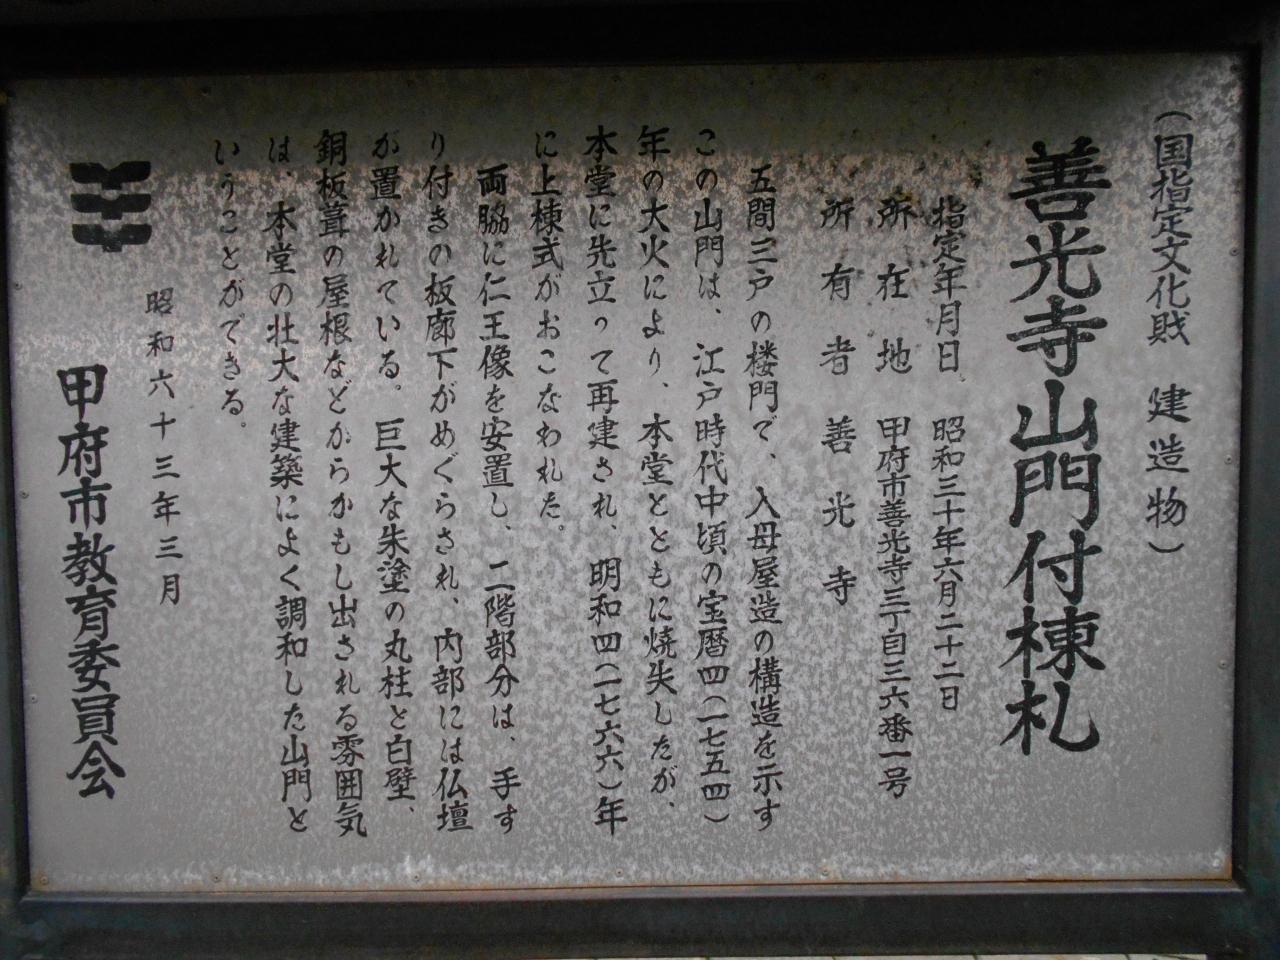 (国指定文化財 建造物)
善光寺山門付棟札
指定年月日 昭和三十年六月二十二日
所在地 甲府市善光寺三丁目三六番一号
所有者 善光寺
五間三戸の楼門で、入母屋造の構造を示す
この山門は、江戸時代中頃の宝暦四(一七五四)
年の大火により、本堂とともに焼失したが、
本堂に先立って再建され、明和四(一七六六)年
に上棟式がおこなわれた。
両脇に仁王像を安置し、二階部分は、手す
り付きの板廊下がめぐらされ、内部には仏壇
が置かれている。巨大な朱塗の丸柱と白壁、
銅板葺の屋根などからかもし出される雰囲気
は、本堂の壮大な建築によく調和した山門と
いうことができる。
昭和六十三年三月
甲府市教育委員会